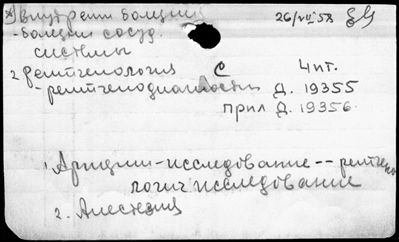 *) Внутрени болезни 26/VII 58
- болезни сосуд.
системы
2 рентгенология С 4 ит.
- рентгенодиагностика Д. 19355
прил Д. 19356.
1. Артерии - исследование -- рентгено
логич исследование
2. Анестезия